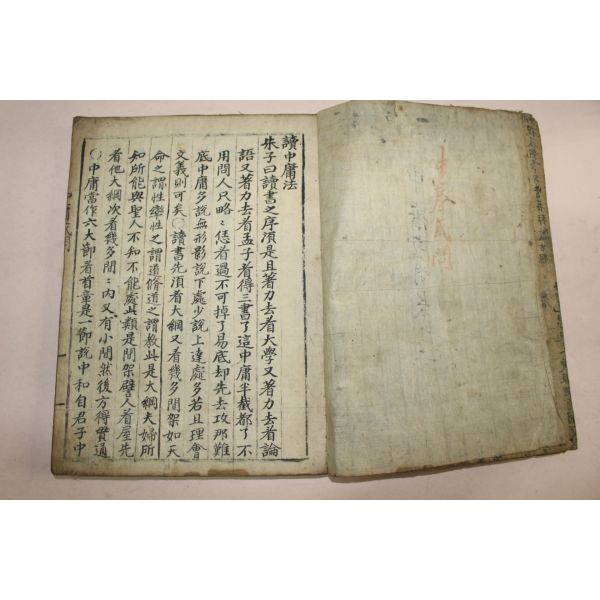 讀中庸法
朱子曰讀書之序須是且著力去看大學又著力去看論
語又著力去看孟子看得三書了這中庸半截都了不
用問人只略〻恁看過不可掉了易底却先去攻那難
底中庸多說無形影說下處少說上達處多若且理會
文義則可矣〇讀書先須看大綱又看幾多間架如天
命之謂性率性之謂道脩道之謂敎此是大綱夫婦所
知所能與聖人不知不能處此類是間架譬人看屋先
看他大綱次看幾多間〻內又有小間然後方得貫通
〇中庸當作六大節看首章是一節說中和自君子中